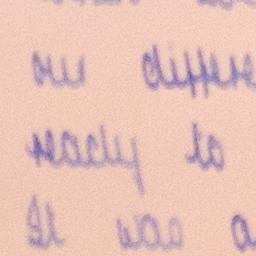 our differe
ready to
It was a